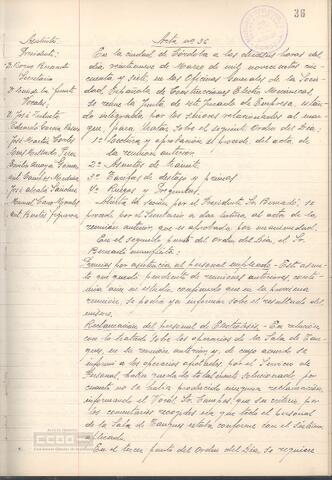 36
Acta nº 36
Asistentes
Presidente:
Secretario
Vocales:
D. José
Eduardo
José
Manuel Caro
En la ciudad de Córdoba a las horas del
día veintinueve de Marzo de mil novecientos cin-
cuenta y siete, en las Oficinas Generales de la Socie-
dad Española de Construcciones Electro Mecánicas,
se reune la Junta de este Jurado de Empresa, están
integrada por los señores relacionados al mar-
gen, para tratar sobre el siguiente Orden del Día:
1º Lectura y aprobación, si procede, del acta de
la reunión anterior.
2º Asuntos de trámite.
3º Tarifas de destajo y primas
4º Ruegos y Preguntas.
Abierta la sesión por el Presidente Sr. Bernadó, se
procede por el Secretario a dar lectura al acta de la
reunión anterior, que es aprobada por unanimidad.
En el segundo punto del orden del Día, el Sr.
Bernadó manifiesta:
Premios por asistencia al personal empleado - Este asun-
to que quedó pendiente de reuniones anteriores, conti-
núa aún en estudio, confiando que en la próxima
reunión, se podrá ya informar sobre el resultado del
mismo.
Reclamación del personal de Electrolisis - En relación
con lo tratado sobre los operarios de la Sala de Tan-
ques, en su reunión anterior, y de cuyo acuerdo se
informó a los operarios afectados, por el Servicio de
Personal, había quedado totalmente solucionado por
cuanto no se había producido ninguna reclamación,
informando el Vocal Sr. Campos, que su criterio por
los comentarios recogidos era que todo el personal
de la Sala de Tanques estaba conforme con el sistema
aplicado.
En el tercer punto del orden del Día, se requiere